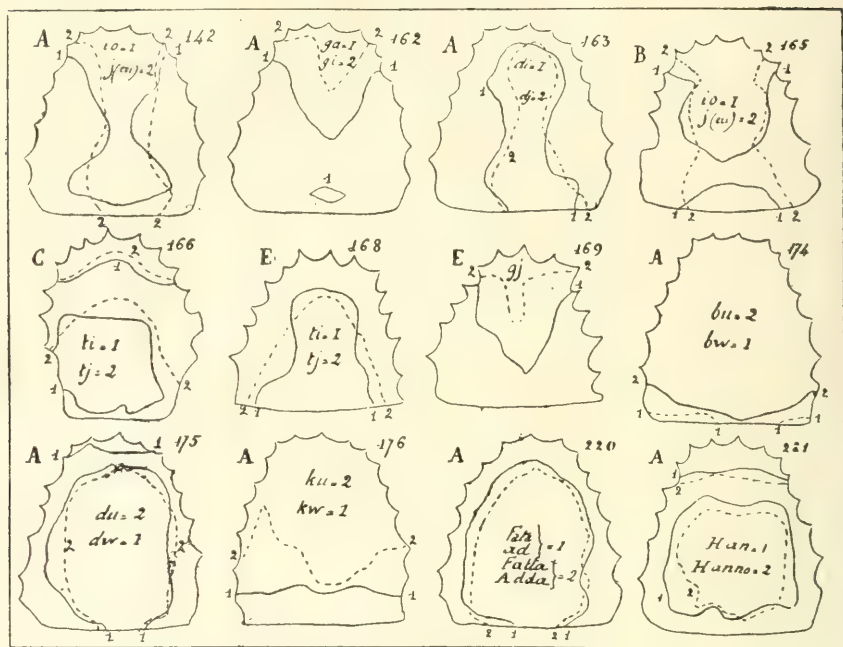 A 142
2 2
1 1
io=I
j(u)=2
1
2 2
A 162
2 2
1 1
ga=I
gi=2
1
A 163
di=I
1
dj=2
2
1 2
B 165
2 2
1 1
io=I
j(u)=2
1 2 1 2
C 166
2
1
ti=I
tj=2
2 2
1
E 168
ti=I
tj=2
2 1 1 2
E 169
2 gj 2
1
A 174
bu=2
bw=1
2 2
1 1 1 1
A 175
1 1
du=2
dw=1
2 2
1 1
A 176
ku=2
kw=1
2 2
1 1
A 220
ad =1
Fatta
Adda =2
2 1 2 1
A 221
1
2
Han=1
Hanno=2
2
1